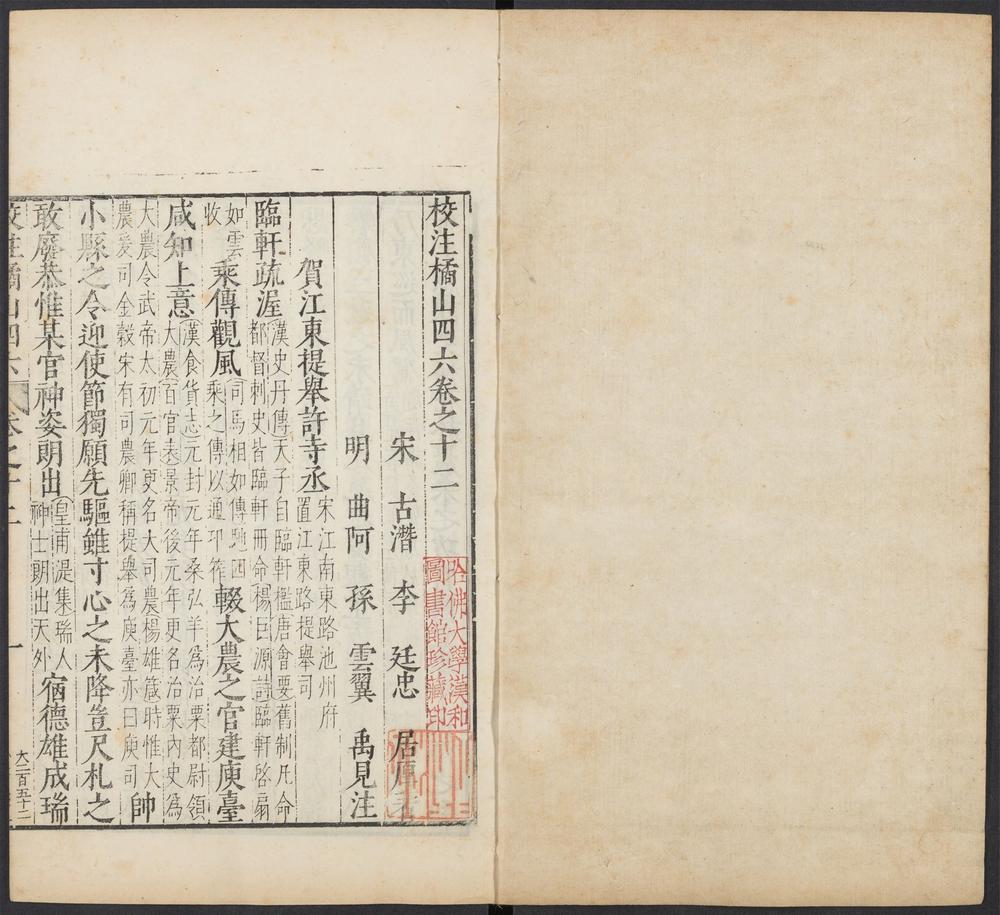 校注橘山四六卷之十二
宋 古潛 李 廷忠 居厚
明 曲阿 孫 雲翼 禹見注
賀江東提舉許寺丞
宋江南東路池州府
置江東路提舉司
臨軒疏渥
漢史丹傳天子自臨軒檻唐會要舊制凡命
都督刺史皆臨軒冊命楊巨源詩臨軒啓扇
如雲
收
乘傳觀風
司馬相如傳馳四
乘之傳以通邛筰
輟大農之官建庾臺
咸知上意
漢食貨志元封元年桑弘羊爲治粟都尉領
大農百官表景帝後元年更名治粟內史爲
大農令武帝太初元年更名大司農楊雄箴時惟大
農爰司金穀宋有司農卿稱提舉爲庾臺亦曰庾司
帥
小縣之令迎使節獨願先驅雖寸心之未降豈尺札之
敢廢恭惟某官神姿朗出
皇甫湜集瑞人
神士朗出天外
宿德雄成瑞
校注橘山四六
卷之十二
一
大二百五十二
哈佛大學漢和
圖書館珍藏印